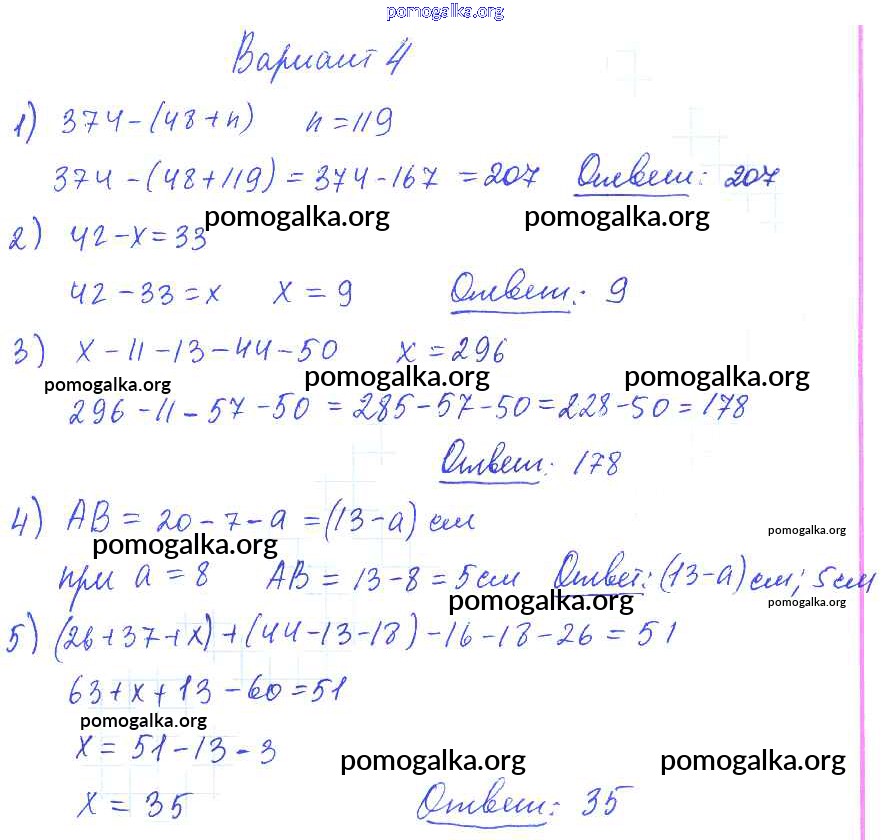 pomogalka.org
Вариант 4
1) 374-(48+n) n=119
374-(48+119)=374-167=207 Ответ: 207
pomogalka.org pomogalka.org
2) 42-x=33
42-33=x x=9 Ответ: 9
3) x-11-13-44-50 x=296
pomogalka.org pomogalka.org pomogalka.org
296-11-57-50=285-57-50=228-50=178
Ответ: 178
4) AB=20-7-a=(13-a) см
pomogalka.org pomogalka.org
при a=8 AB=13-8=5 см Ответ: (13-a) см; 5 см
pomogalka.org pomogalka.org
5) (26+37+x)+(44-13-18)-16-18-26=51
63+x+13-60=51
pomogalka.org
x=51-13-3
pomogalka.org pomogalka.org
x=35 Ответ: 35